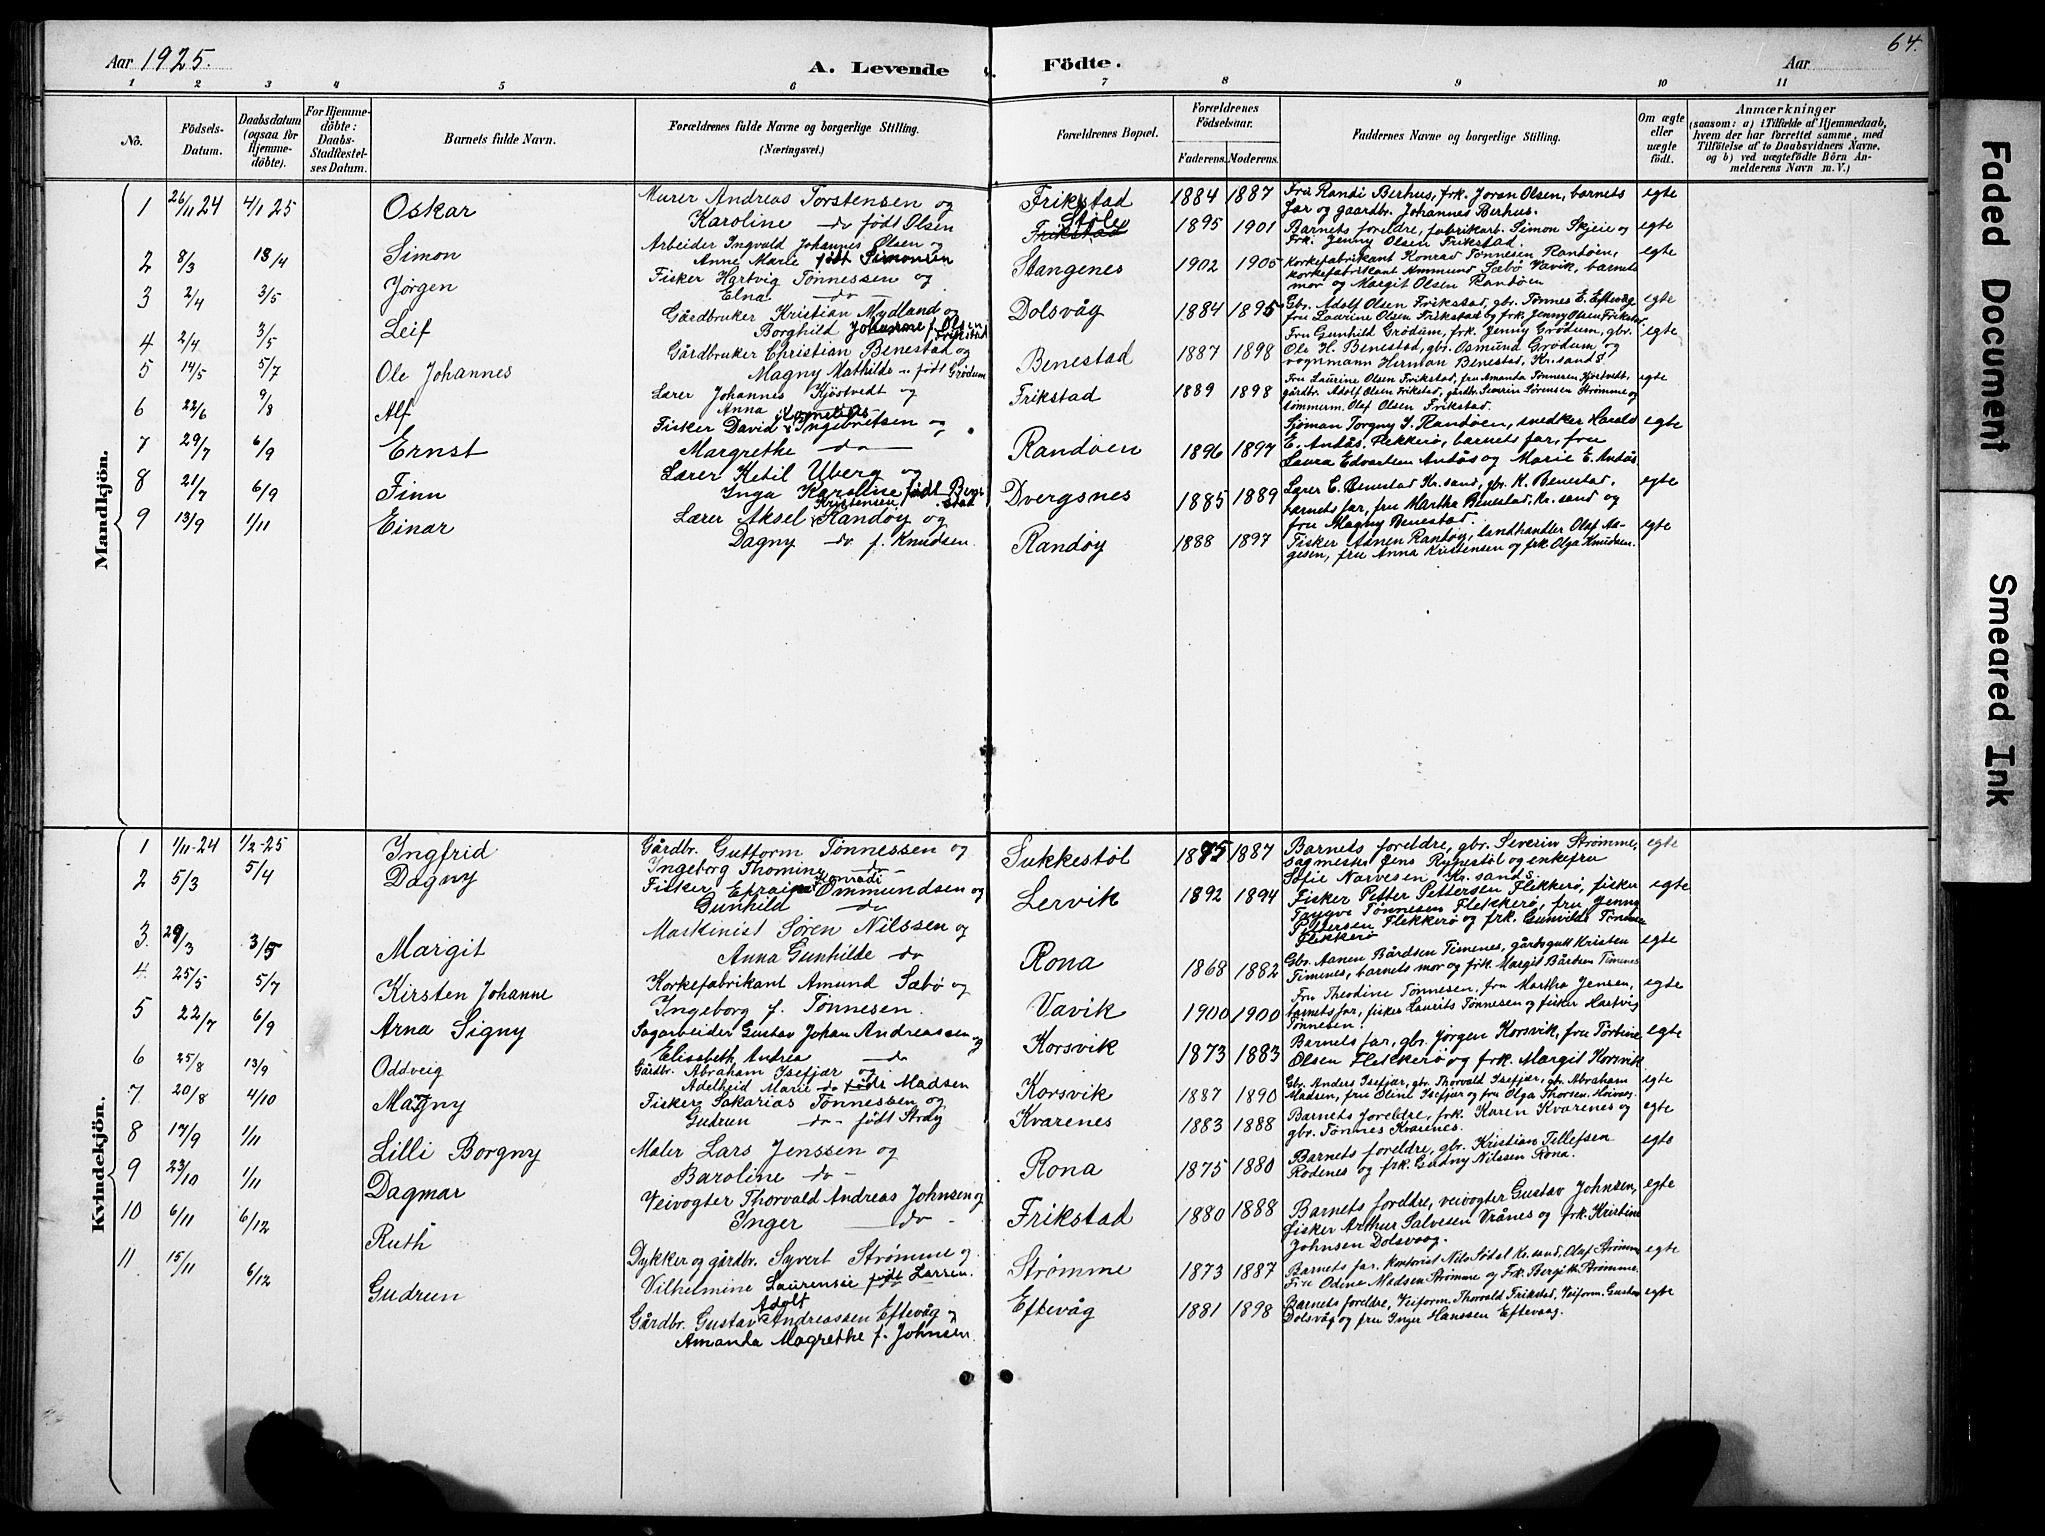 Aar 1925.
A. Levende Födte.
Aar
64.
1 2 3 4 5 6 7 8 9 10 11
No.
Födsels-Datum.
Daabsdatum (ogsaa for Hjemmedöbte).
For Hjemmedöbte: Daabs-Stadfæstelses Datum.
Barnets fulde Navn.
Forældrenes fulde Navne og borgerlige Stilling. (Næringsvei.)
Forældrenes Bopæl.
Forældrenes Födselsaar.
Faderens. Moderens.
Faddernes Navne og borgerlige Stilling.
Om ægte eller uægte födt.
Anmærkninger
(saasom: a) i Tilfælde af Hjemmedaab, hvem der har forrettet samme, med Tilföielse af to Daabsvidners Navne, og b) ved uægtefödte Börn Anmelderens Navn m. V.)
Mandkjön.
1 26/11 24 4/1 25 Oskar
Murer Andreas Torstensen og
Karoline do født Olsen
Frikstad 1884 1887
Fru Randi Berhus, frk. Joran Olsen, barnets
far og gaardbr. Johannes Berhus.
egte
2 8/3 13/4 Simon
Arbeider Ingvald Johannes Olsen og
Anne Marie født Simonsen
Støle Frikstad 1895 1901
Barnets foreldre, fabrikarb. Simon Skjeie og
Frk. Jenny Olsen Frikstad.
egte
3 2/4 3/5 Jørgen
Fisker Hartvig Tønnessen og
Elna do
Stangenes 1902 1905
Korkefabrikant Konrad Tønnesen Randøen,
korkefabrikant Ammund Sæbø Vavik, barnets
mor og Margit Olsen Randøen
egte
4 2/4 3/5 Leif
Gårdbruker Kristian Mydland og
Borghild Johanne f. Olsen Frikstad
Dolsvåg 1884 1895
Gbr. Adolf Olsen Frikstad, gbr. Tønnes E. Eftevåg
fru Laurine Olsen Frikstad og frk. Jenny Olsen Frikstad
egte
5 14/5 5/7 Ole Johannes
Gårdbruker Christian Benestad og
Magny Mathilde " født Grødum
Benestad 1887 1898
Fru Gunhild Grødum, frk. Jenny Grødum, gbr.
Ole H. Benestad, gbr. Osmund Grødum og
vognmann Herman Benestad, Kr.sand S
egte
6 22/6 9/8 Alf
Lærer Johannes Kjøstvedt og
Anna do
Frikstad 1889 1898
Fru Laurine Olsen Frikstad, fru Amanda Tønnesen Kjøstvedt,
gårdbr. Adolf Olsen Frikstad, gårdbr. Severin Sørensen Strømme og
tømmerm. Olaf Olsen Frikstad.
egte
7 29/7 6/9 Ernst
Fisker David Kornelius Ingebretsen og
Margrethe do
Randøen 1896 1897
Sjøman Torgny I. Randøen, snedker Harald
E. Andås Flekkerø, barnets far, fru
Laura Edvartsen Andås og Marie E. Andås
egte
8 21/7 6/9 Finn
Lærer Ketil Uberg og
Inga Karoline født Bergstad
Dvergsnes 1885 1889
Lærer C. Benestad Kr.sand, gbr. K. Benestad,
barnets far, fru Martha Benestad, Kr. sand og
fru Magny Benestad.
egte
9 13/9 1/11 Einar
Lærer Aksel Kristensen Randøy og
Dagny do f. Knudsen.
Randøy 1888 1897
Fisker Asnen Randøy, landhandler Olaf Aagesen, fru Anna Kristensen og frk. Olga Knudsen.
egte
Kvindekjön.
1 1/11-24 1/2-25 Ingfrid
Gårdbr. Guttorm Tønnessen og
Ingeborg Thomine do
Sukkestøl 1875 1887
Barnets foreldre, gbr. Severin Strømme,
sagmester Jens Rypestøl og enkefru
Sofie Narvesen Kr. sand S.
egte
2 5/3 5/4 Dagny
Fisker Efraim Konradi Ommundsen og
Gunhild do
Lervik 1892 1894
Fisker Petter Pettersen Flekkerø, fisker
Trygve Tønnesen Flekkerø, fru Jenny
Pettersen Flekkerø og frk. Gunvilda Tønnes
Flekkerø
egte
3. 29/3 3/5 Margit
Maskinist Søren Nilssen og
Anna Gunhilde do
Rona 1868 1882
Gbr. Aanen Bårdsen Timenes, gårdsgutt Kristen
Timenes, barnets mor og frk. Margit Bårdsen Timenes
egte
4 25/5 5/7 Kirsten Johanne
Korkefabrikant Amund Sæbø og
Ingeborg f. Tønnesen.
Vavik 1900 1900
Fru Theodine Tønnesen, fru Martha Jensen,
barnets far, fisker Laurits Tønnesen og fisker Hartvig
Tønnesen.
egte
5 22/7 6/9 Arna Signy
Sagarbeider Gustav Johan Andreassen og
Elisabeth Andrea do
Korsvik 1873 1883
Barnets far, gbr. Jørgen Korsvik, fru Torbine
Olsen Flekkerø og frk. Margit Korsvik
egte
6 25/8 13/9 Oddveig
Gårdbr. Abraham Isefjær og
Adelheid Marie do født Madsen
Korsvik 1887 1890
Gbr. Anders Isefjær, gbr. Thorvald Isefjær, gbr. Abraham
Madsen, fru Oline Isefjær og fru Olga Thorsen Høivåg.
egte
7 20/8 4/10 Magny
Fisker Sakarias Tønnessen og
Gudrun do født Stray
Kvarenes 1883 1888
Barnets foreldre, frk. Karen Kvarenes og
gbr. Tønnes Kvarenes.
egte
8 17/9 1/11 Lilli Borgny
Maler Lars Jenssen og
Baroline do
Rona 1875 1880
Barnets foreldre, gbr. Kristian Tellefsen
Rodenes og frk. Gudny Nilssen Rona.
egte
9 23/10 1/11 Dagmar
Veivogter Thorvald Andreas Johnsen og
Inger do
Frikstad 1880 1888
Barnets foreldre, veivogter Gustav Johnsen,
fisker Arthur Salvesen Vrånes og frk. Kristine
Johnsen Dolsvaag.
egte
10 6/11 6/12 Ruth
Dykker og gårdbr. Syvert Strømme og
Vilhelmine Laurensie født Larsen.
Strømme 1873 1887
Barnets far, kontorist Nils Sødal Kr. sand, Olaf Strømme
Fru Odine Madsen Strømme og Frk. Bergit Strømme.
egte
11 15/11 6/12 Gudrun
Gårdbr. Gustav Adolf Andreassen Eftevåg og
Amanda Magrethe f. Johnsen.
Eftevåg 1881 1898
Barnets foreldre, Veiform. Thorvald Frikstad, Veiform. Gustav
Dolsvåg og fru Inger Hanssen Eftevaag.
egte
Faded Document
Smeared Ink